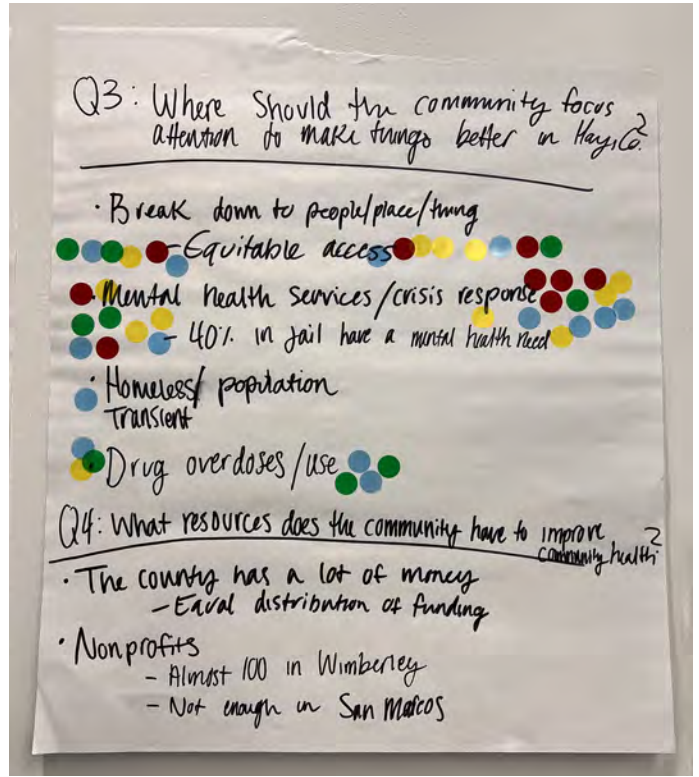 Q3: Where Should the community focus
attention to make things better in Hays Co.?
· Break down to people/place/thing
- Equitable access
· Mental health services/crisis response
- 40% in jail have a mental health need
· Homeless/ population
Transient
· Drug overdoses/use
Q4: What resources does the community have to improve
community health?
· The county has a lot of money
- Equal distribution of funding
· Nonprofits
- Almost 100 in Wimberley
- Not enough in San Marcos